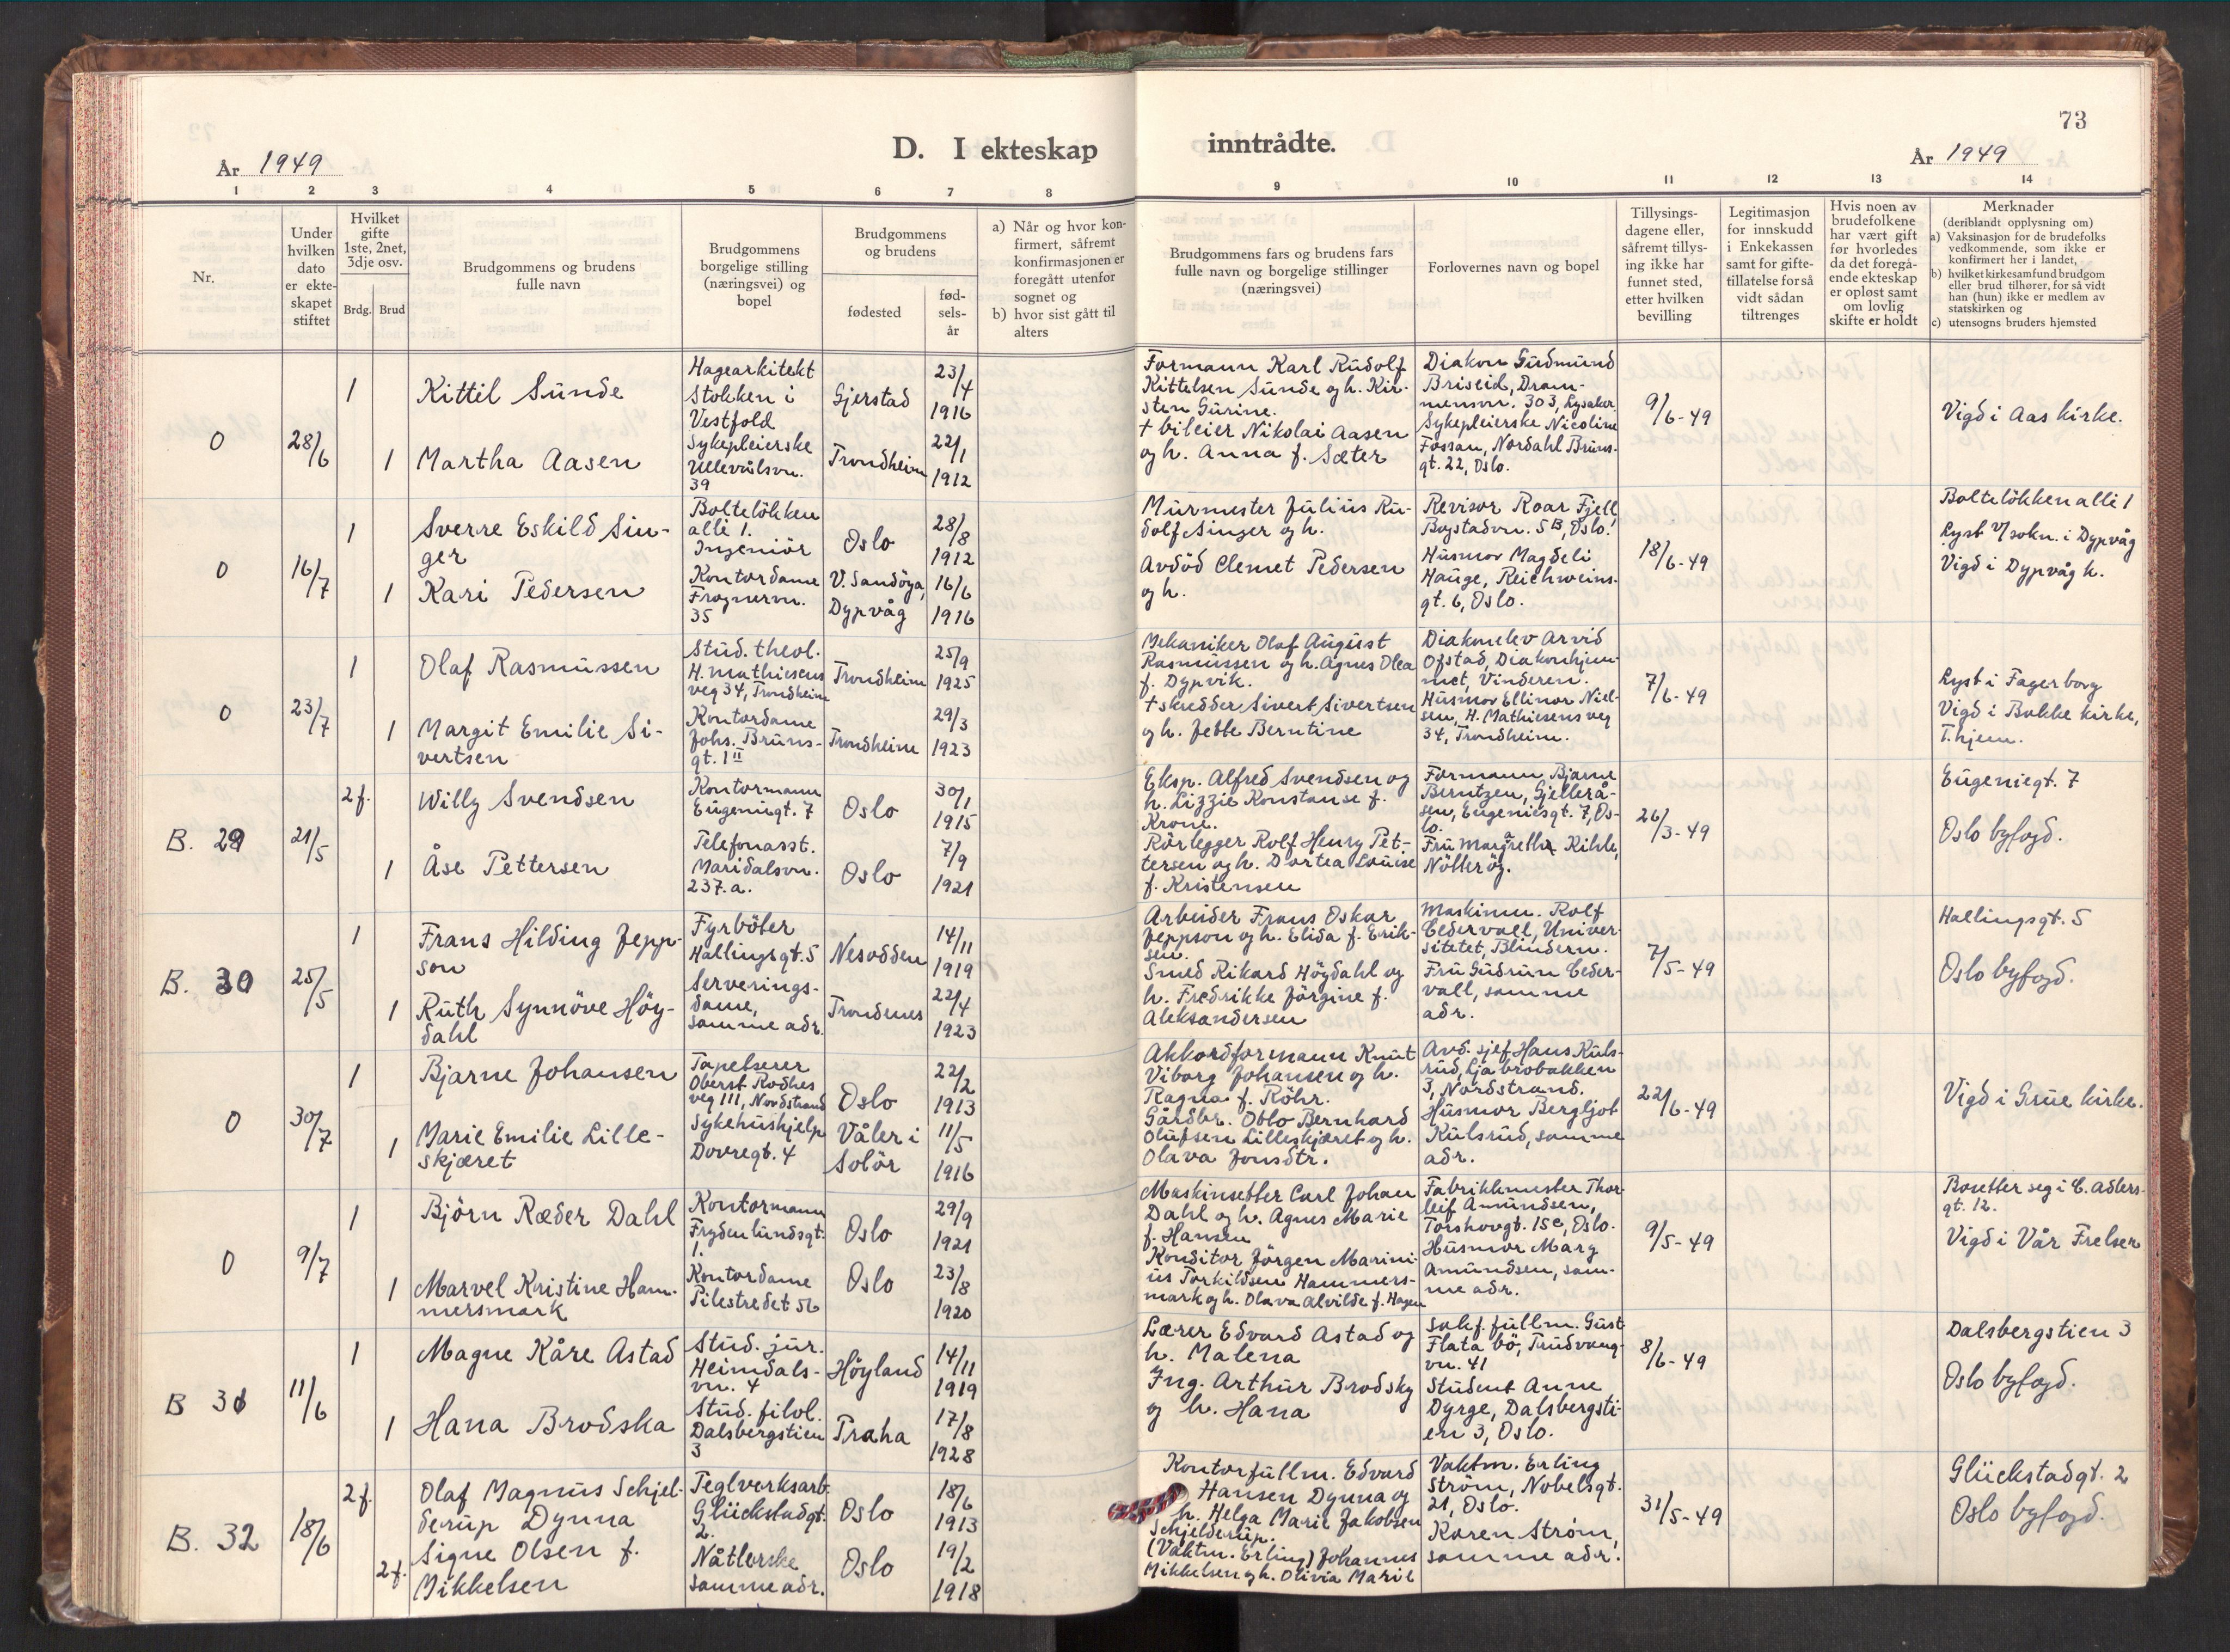 73
D. I ekteskap inntrådte.
År 1949
År 1949
1 2 3 4 5 6 7 8 9 10 11 12 13 14
Nr.
Under
hvilken
dato
er ekte-
skapet
stiftet
Hvilket
gifte
1ste, 2net,
3dje osv.
Brdg. Brud
Brudgommens og brudens
fulle navn
Brudgommens
borgelige stilling
(næringsvei) og
bopel
Brudgommens
og brudens
fødested
fød-
sels-
år
a) Når og hvor kon-
firmert, såfremt
konfirmasjonen er
foregått utenfor
sognet og
b) hvor sist gått til
alters
Brudgommens fars og brudens fars
fulle navn og borgelige stillinger
(næringsvei)
Forlovernes navn og bopel
Tillysings-
dagene eller,
såfremt tillys-
ing ikke har
funnet sted,
etter hvilken
bevilling
Legitimasjon
for innskudd
i Enkekassen
samt for gifte-
tillatelse for så
vidt sådan
tiltrenges
Hvis noen av
brudefolkene
har vært gift
før hvorledes
da det foregå-
ende ekteskap
er opløst samt
om lovlig
skifte er holdt
Merknader
(deriblandt opplysning om)
a) Vaksinasjon for de brudefolks
vedkommende, som ikke er
konfirmert her i landet,
b) hvilket kirkesamfund brudgom
eller brud tilhører, for så vidt
han (hun) ikke er medlem av
statskirken og
c) utensogns bruders hjemsted
0
28/6
1
Kittil Sunde
Hagearkitekt
Stokken i
Vestfold
Gjerstad
23/4
1916
1
Martha Aasen
Sykepleierske
Ullevålsvn.
39
Trondheim
22/1
1912
Formann Karl Rudolf
Kittelsen Sunde og h. Kir-
sten Gurine.
† bileier Nikolai Aasen
og h. Anna f. Sæter
Diakon Gudmund
Briseid, Dram-
mensvn. 303, Lysaker.
Sykepleierske Nicoline
Fossan, Nordahl Bruns-
gt. 22, Oslo.
9/6-49
Vigd i Aas kirke.
0
16/7
1
Sverre Eskild Sin-
ger
Bolteløkken
alle 1.
Ingeniör
Oslo
28/8
1912
1
Kari Pedersen
Kontordame
Frognervn.
35
V. Sandöya,
Dypvåg
16/6
1916
Murmester Julius Ru-
dolf Singer og h.
Avdöd Clemet Pedersen
og h.
Revisor Roar Fjell,
Bogstadvn. 5B, Oslo.
Husmor Magdeli
Hauge, Reichweins-
gt. 6, Oslo.
18/6-49
Bolteløkken alle 1
Lyst i sokn. i Dypvåg
Vigd i Dypvåg k.
0
23/7
1
Olaf Rasmussen
Stud. theol.
H. Mathiesens
veg 34, Trondheim
Trondheim
25/9
1925
1
Margit Emilie Si-
vertsen
Kontordame
Johs. Bruns-
gt. 1 II
Trondheim
29/3
1923
Mekaniker Olaf August
Rasmussen og h. Agnes Olea
f. Dypvik.
† skredder Sivert Sivertsen
og h. Jette Berntine
Diakonelev Arvid
Ofstad, Diakonhjem-
met, Vinderen.
Husmor Ellinor Niel-
sen, H. Mathiesens veg
34, Trondheim.
7/6-49
Lyst i Fagerborg
Vigd i Bakke kirke,
T.hjem.
B. 29
21/5
2 f.
Willy Svendsen
Kontormann
Eugenigt. 7
Oslo
30/1
1915
1
Åse Pettersen
Telefonasst.
Maridalsvn.
237.a.
Oslo
7/9
1921
Eksp. Alfred Svendsen og
h. Lizzie Konstanse f.
Krone.
Rörlegger Rolf Henry Pet-
tersen og h. Dortea Louise
f. Kristensen
Formann Bjarne
Berntzen, Gjellerå-
sen, Eugeniesgt. 7, Os-
lo.
Fru Margretha Kihle,
Nötteröy.
26/3-49
Eugeniegt. 7
Oslo byfogd.
B. 30
25/5
1
Frans Hilding Jepp-
son
Fyrböter
Hallingsgt. 5
Nesodden
14/11
1919
1
Ruth Synnöve Höy-
dahl
Serverings-
dame,
samme adr.
Trondenes
22/4
1923
Arbeider Frans Oskar
Jeppson og h. Elida f. Erik-
sen.
Smed Rikard Höydahl og
h. Fredrikke Jörgine f.
Aleksandersen
Maskinm. Rolf
Cedervall, Univer-
sitetet, Blindern.
Fru Gudrun Ceder-
vall, samme
adr.
7/5-49
Hallingsgt. 5
Oslo byfogd.
0
30/7
1
Bjarne Johansen
Tapetserer
Oberst Rodhes
veg 111, Nordstrand
Oslo
22/2
1913
1
Marie Emilie Lille-
skjæret
Sykehushjelp
Dovregt. 4
Våler i
Solör
11/5
1916
Akkordformann Knut
Viborg Johansen og h.
Ragna f. Röhr.
Gårdbr. Otto Bernhard
Olufsen Lilleskjæret og h.
Olava Jonsdtr.
Avd. sjef Hans Kuls-
rud, Ljabrobakken
3, Nordstrand.
Husmor Bergljot
Kulsrud, samme
adr.
22/6-49
Vigd i Grue kirke.
0
9/7
1
Björn Ræder Dahl
Kontormann
Frydenlundsgt.
1.
Oslo
29/9
1921
1
Marvel Kristine Ham-
mersmark
Kontordame
Pilestredet 56
Oslo
23/8
1920
Maskinsetter Carl Johan
Dahl og h. Agnes Marie
f. Hansen
Konditor Jörgen Marini-
us Torkildsen Hammers-
mark og h. Olava Alvilde f. Hagen
Fabrikkmester Thor-
leif Amundsen,
Torshovgt. 15c, Oslo.
Husmor Marg
Amundsen, sam-
me adr.
9/5-49
Bosetter seg i C. Adlers-
gt. 12.
Vigd i Vår Frelser
B 31
11/6
1
Magne Kåre Astad
Stud. jur.
Heimdals-
vn. 4
Höyland
14/11
1919
1
Hana Brodska
Stud. filol.
Dalsbergstien
3
Praha
17/8
1928
Lærer Edvard Astad og
h. Malena
Ing. Arthur Brodsky
og h. Hana
fullm. Gust
Flatabö, Trudvang-
vn. 41
Student Anne
Dyrge, Dalsbergsti-
en 3, Oslo.
8/6-49
Dalsbergstien 3
Oslo byfogd.
B. 32
18/6
2 f.
Olaf Magnus Schjel-
derup Dynna
Teglverksarb.
Glückstadgt.
2.
Oslo
18/6
1913
2 f.
Signe Olsen f.
Mikkelsen
Nåtlerske
samme adr.
Oslo
19/2
1918
Kontorfullm. Edvard
Hansen Dynna og
h. Helga Marie Jakobsen
Schjelderup.
(Vaktm. Erling) Johannes
Mikkelsen og h. Olivia Marie
Vaktm. Erling
Ström, Nobelsgt.
21, Oslo.
Karen Ström,
samme adr.
31/5-49
Glückstadgt. 2
Oslo byfogd.